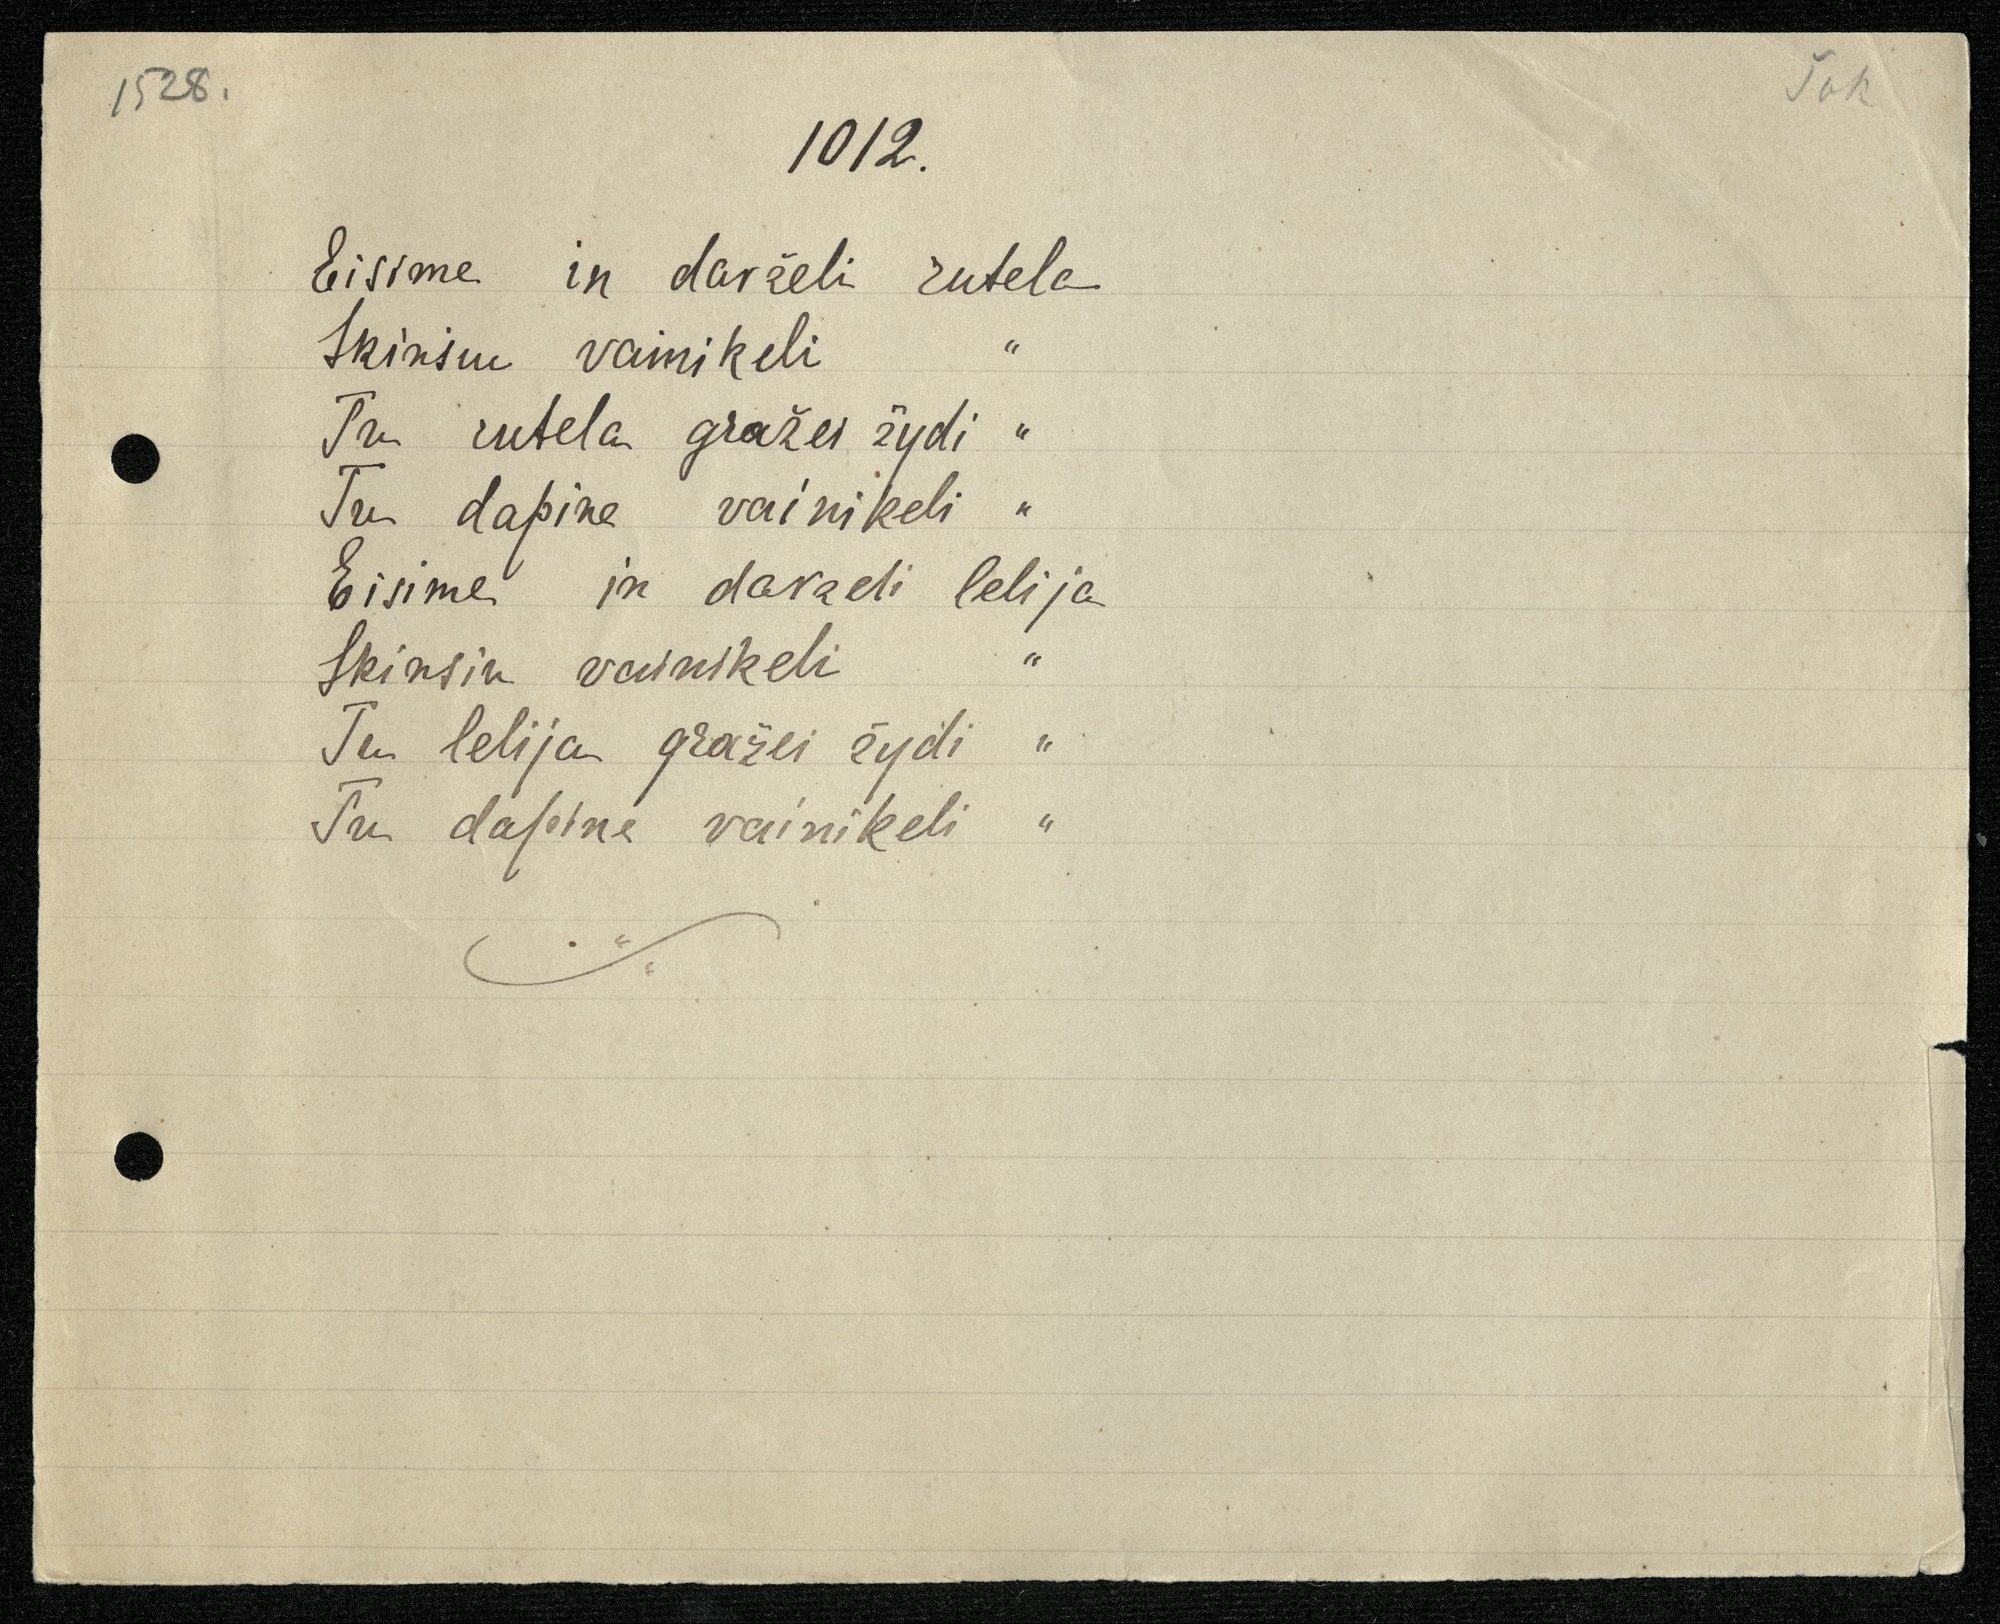 1528.
Šok
1012.
Eisime in darželi rutela
Skinsiu vainikeli "
Tu rutela gražei žydi "
Tu dapine vainikeli "
Eisime in darzeli lelija
Skinsiu vainikeli "
Tu lelija gražei žydi "
Tu dapine vainikeli "